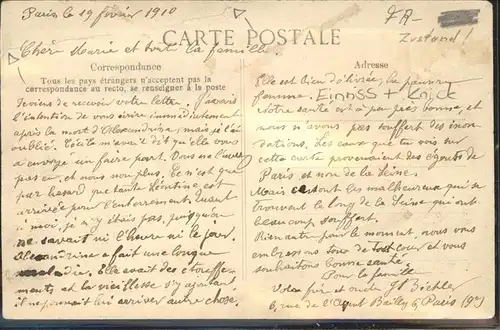 Paris le 19 février 1910
FR-
Zustand!
Chère Marie et toute la famille.
CARTE POSTALE
Correspondance
Tous les pays étrangers n'acceptent pas la
correspondance au recto, se renseigner à la poste
Adresse
Je viens de recevoir votre lettre. J'avais
l'intention de vous écrire immédiatement
après la mort d'Alexandrine; mais je l'ai
oublié. Cécile m'avait dit qu'elle vous
a envoyé un faire part. Vous ne l'avez
pas eu, et nous non plus. Ce n'est que
par hasard que tante Léontine est
arrivée pour l'enterrement. Quant
à moi, je n'y étais pas, puisqu'on
ne savait ni l'heure ni le jour.
Alexandrine a fait une longue
maladie. Elle avait des étouffe-
ments, et la vieillesse s'y ajoutant,
il ne pouvait lui arriver autre chose.
Elle est bien délivrée, la pauvre
femme. Einriss + Knick
Notre santé est à peu près bonne, et
nous n'avons pas souffert des inon-
dations. Les eaux que tu vois sur
cette carte provenaient des égouts de
Paris et non de la Seine.
Mais ce sont les malheureux qui se
trouvent le long de la Seine qui ont
beaucoup souffert.
Rien autre pour le moment, nous vous
embrassons tous de tout cœur et vous
souhaitons bonne santé.
Pour la famille
Votre et oncle
6, rue de l'Agent Bailly 6, Paris (9e)